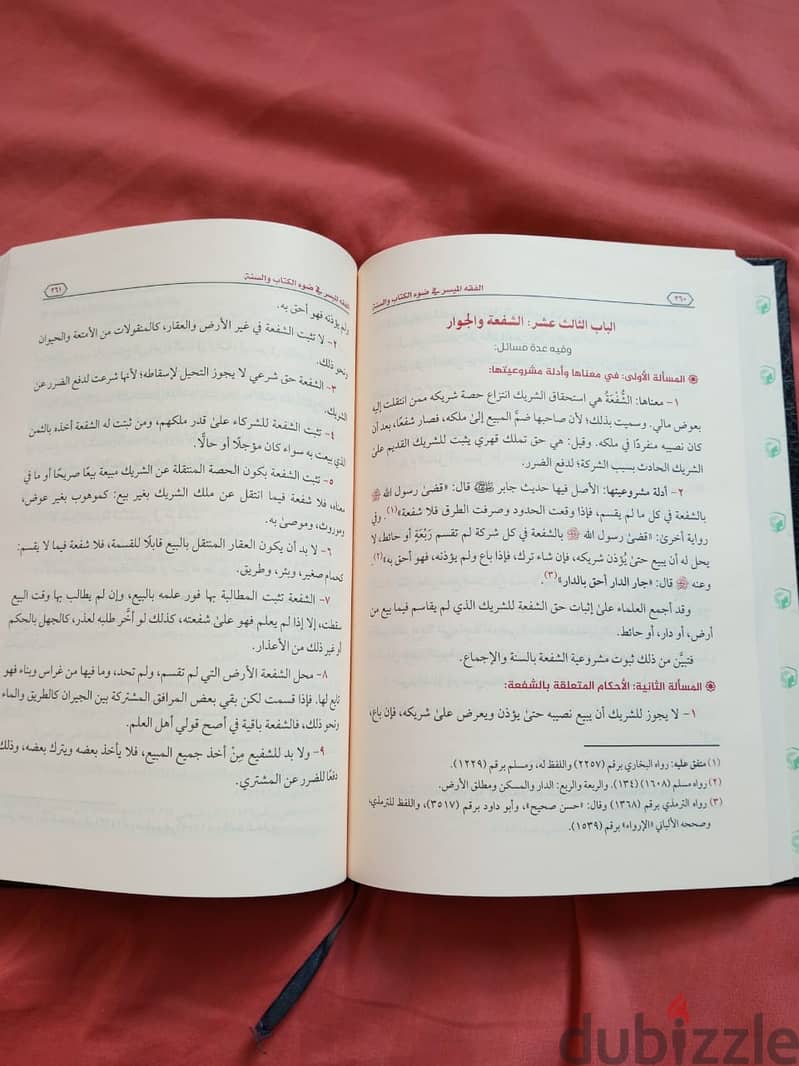 ٢٦٠
الفقه الميسر في ضوء الكتاب والسنة
الباب الثالث عشر: الشفعة والجوار
وفيه عدة مسائل:
المسألة الأولى: في معناها وأدلة مشروعيتها:
١- معناها: الشُّفْعَةُ هي استحقاق الشريك انتزاع حصة شريكه ممن انتقلت إليه
بعوض مالي. وسميت بذلك؛ لأن صاحبها ضمَّ المبيع إلى ملكه، فصار شفعًا، بعد أن
كان نصيبه منفردًا في ملكه. وقيل: هي حق تملك قهري يثبت للشريك القديم على
الشريك الحادث بسبب الشركة؛ لدفع الضرر.
٢- أدلة مشروعيتها: الأصل فيها حديث جابر رضي الله عنه قال: «قضى رسول الله ﷺ
بالشفعة في كل ما لم يقسم، فإذا وقعت الحدود وصرفت الطرق فلا شفعة»(١). وفي
رواية أخرى: «قضى رسول الله ﷺ بالشفعة في كل شركة لم تقسم رَبْعَةٍ أو حائط، لا
يحل له أن يبيع حتى يُؤذن شريكه، فإن شاء ترك، فإذا باع ولم يؤذنه، فهو أحق به»(٢).
وعنه ﷺ قال: «جار الدار أحق بالدار»(٣).
وقد أجمع العلماء على إثبات حق الشفعة للشريك الذي لم يقاسم فيما بيع من
أرض، أو دار، أو حائط.
فتبيَّن من ذلك ثبوت مشروعية الشفعة بالسنة والإجماع.
المسألة الثانية: الأحكام المتعلقة بالشفعة:
١- لا يجوز للشريك أن يبيع نصيبه حتى يؤذن ويعرض على شريكه، فإن باع،
(١) متفق عليه: رواه البخاري برقم (٢٢٥٧) واللفظ له، ومسلم برقم (١٢٢٩).
(٢) رواه مسلم (١٦٠٨) (١٣٤). والربعة والربع: الدار والمسكن ومطلق الأرض.
(٣) رواه الترمذي برقم (١٣٦٨) وقال: «حسن صحيح»، وأبو داود برقم (٣٥١٧)، واللفظ للترمذي،
وصححه الألباني «الإرواء» برقم (١٥٣٩).
الفقه الميسر في ضوء الكتاب والسنة
٢٦١
ولم يؤذنه فهو أحق به.
٢- لا تثبت الشفعة في غير الأرض والعقار، كالمنقولات من الأمتعة والحيوان
ونحو ذلك.
٣- الشفعة حق شرعي لا يجوز التحيل لإسقاطه؛ لأنها شرعت لدفع الضرر عن
الشريك.
٤- تثبت الشفعة للشركاء على قدر ملكهم، ومن ثبتت له الشفعة أخذه بالثمن
الذي بيعت به سواء كان مؤجلًا أو حالًّا.
٥- تثبت الشفعة بكون الحصة المنتقلة عن الشريك مبيعة بيعًا صريحًا أو ما في
معناه، فلا شفعة فيما انتقل عن ملك الشريك بغير بيع: كموهوب بغير عوض،
وموروث، وموصى به.
٦- لا بد أن يكون العقار المنتقل بالبيع قابلًا للقسمة، فلا شفعة فيما لا يقسم:
كحمام صغير، وبئر، وطريق.
٧- الشفعة تثبت المطالبة بها فور علمه بالبيع، وإن لم يطالب بها وقت البيع
سقطت، إلا إذا لم يعلم فهو على شفعته، كذلك لو أخَّر طلبه لعذر، كالجهل بالحكم
أو غير ذلك من الأعذار.
٨- محل الشفعة الأرض التي لم تقسم، ولم تحد، وما فيها من غراس وبناء فهو
تابع لها. فإذا قسمت لكن بقي بعض المرافق المشتركة بين الجيران كالطريق والماء
ونحو ذلك، فالشفعة باقية في أصح قولي أهل العلم.
٩- ولا بد للشفيع مِنْ أخذ جميع المبيع، فلا يأخذ بعضه ويترك بعضه، وذلك
دفعًا للضرر عن المشتري.
dubizzle